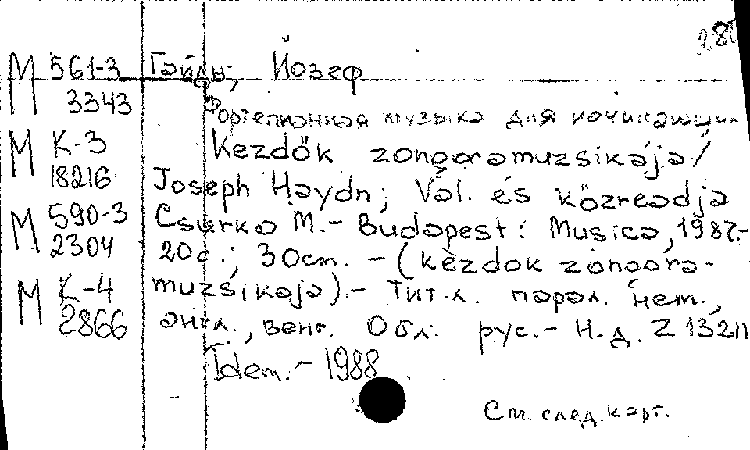 М 561-3 Гайдн, Йозеф
3343 Фортепианная музыка для начинающих
М К-3 Kezdők zongoramuzsikája /
18216 Joseph Haydn; Vál. és közreadja
М 590-3 Csurka M. - Budapest: Musica, 1987.-
2304 20 с.; 30 cm. - (kezdők zongora-
М К-4 muzsikája). - Тит. л. парал. нем.,
2866 англ., венг. Обл. рус. - Н.д. Z 13211
Idem. - 1988
См. след. карт.